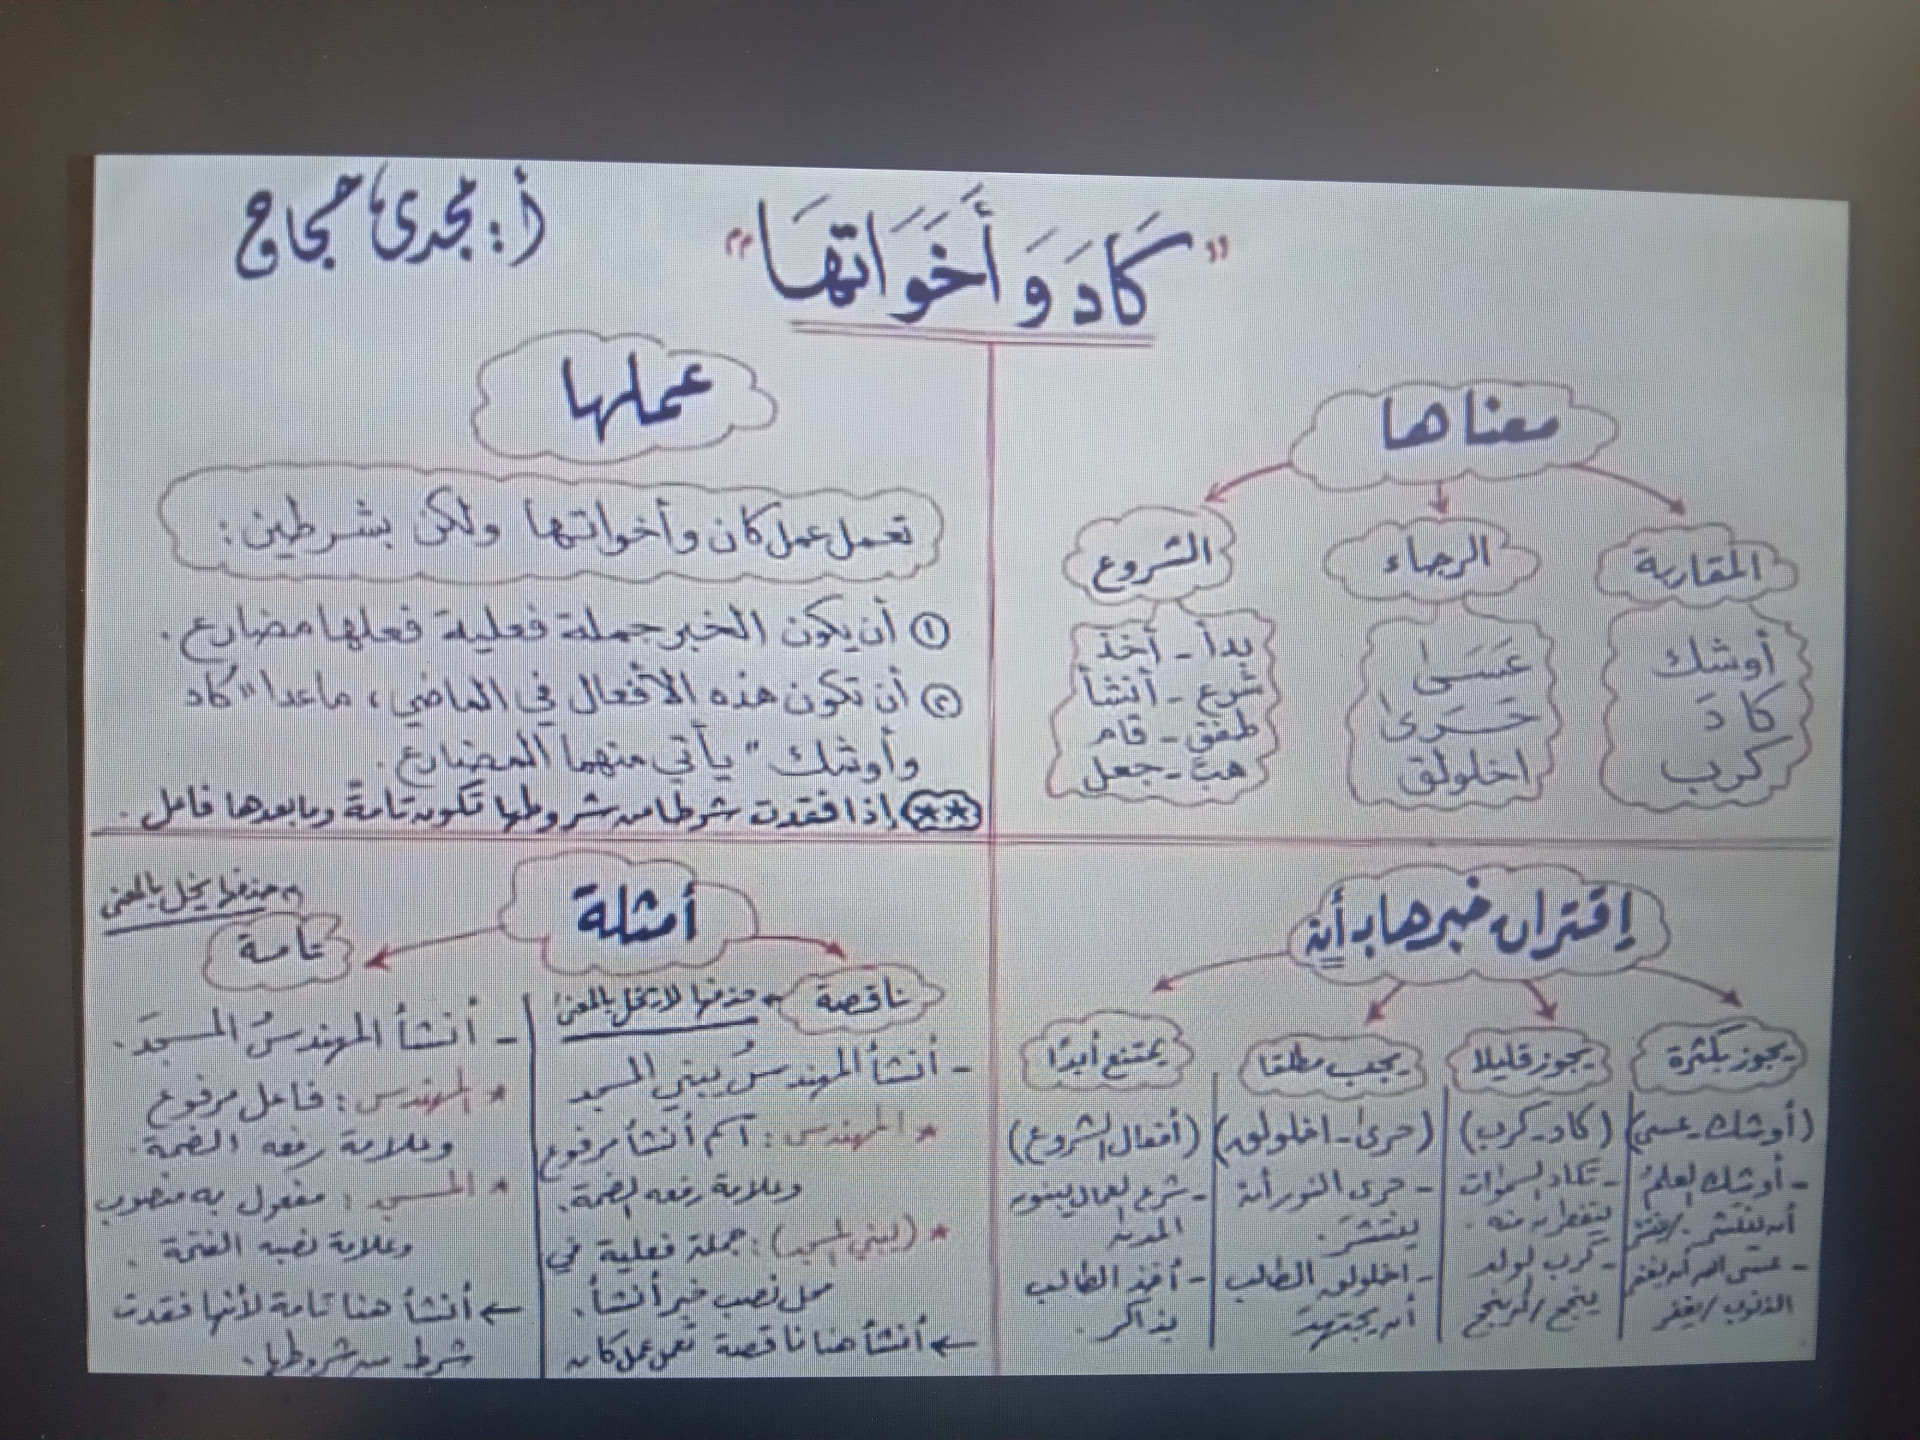 "كَادَ وَأَخَوَاتهَا"
أ: مجدى حجاج
معناها
المقاربة
أوشك
كادَ
كرب
الرجاء
عَسَىٰ
حَرَىٰ
اخلولق
الشروع
بدأ - أخذ
شرع - أنشأ
طفق - قام
هبّ - جعل
عملها
تعمل عمل كان وأخواتها ولكن بشرطين:
① أن يكون الخبر جملة فعلية فعلها مضارع.
② أن تكون هذه الأفعال في الماضي، ماعدا "كاد
وأوشك" يأتي منهما المضارع.
** إذا فقدت شرطا من شروطها تكون تامةً وما بعدها فاعل.
إقتران خبرها بـ أن
يجوز بكثرة
(أوشك - عسى)
- أوشك العلمُ
أن ينتشر /ينتشر
- عسى الله أن يغفر
الذنوب /يغفر
يجوز قليلا
(كاد - كرب)
- تكاد السموات
يتفطرن منه.
- كرب الولد
ينجح /أن ينجح
يجب مطلقا
(حرىٰ - اخلولق)
- حرى النور أن
ينتشرَ.
- اخلولق الطالب
أن يجتهدَ
يمتنع أبدًا
(أفعال الشروع)
- شرع العمال يبنون
المدينة
- أخذ الطالب
يذاكر.
أمثلة
ناقصة ← حذفها لا يخل بالمعنى
- أنشأ المهندسُ يبني المسجد
* المهندس: اسم أنشأ مرفوع
وعلامة رفعه الضمة.
* (يبني المسجد): جملة فعلية في
محل نصب خبر أنشأ.
← أنشأ هنا ناقصة تعمل عمل كان
حذفها يخل بالمعنى
تامة
- أنشأ المهندسُ المسجدَ.
* المهندس: فاعل مرفوع
وعلامة رفعه الضمة.
* المسجد: مفعول به منصوب
وعلامة نصبه الفتحة.
← أنشأ هنا تامة لأنها فقدت
شرط من شروطها.